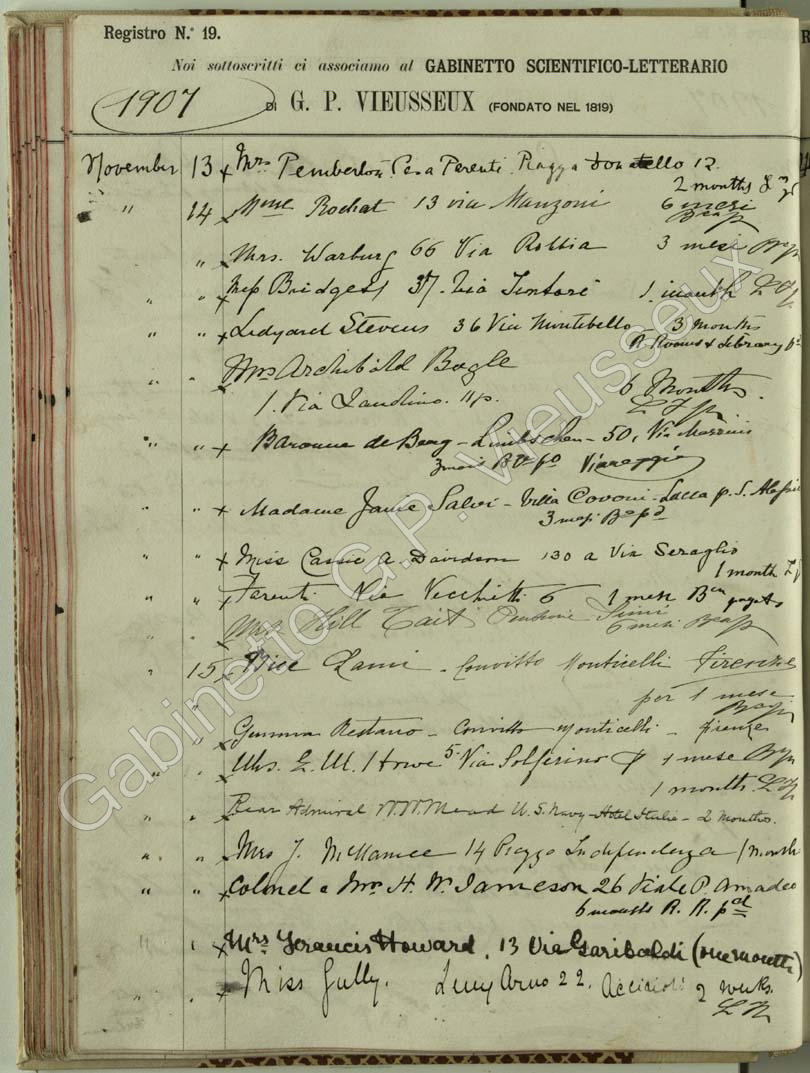 Registro N.° 19.
Noi sottoscritti ci associamo al GABINETTO SCIENTIFICO-LETTERARIO
1907 DI G. P. VIEUSSEUX (FONDATO NEL 1819)
November 13 x Mrs Pemberton Casa Parenti Piazza Donatello 12
2 months L
" 14 x Mme Rochat 13 via Manzoni 6 mesi
" x Mrs. Warburg 66 Via Robbia 3 mesi
" " x 37. Via Tintori 1 month
" " x Ledyard Stevens 36 Via Montebello 3 months
R. Rooms & Library pd
" " Mrs Archibald Bogle
1. Via Landino. 11p. 6 Months.
" " x Baronne de Berg - - 50, Via Mazzini
3 mois Viareggio
" " x Madame Jame Salvi - Villa Covoni - Lucca p. S.
3 mesi
" " x Miss Cassie A. Davidson 130 a Via Seraglio
1 month
" " x Parenti Via Vecchietti 6 1 mese
" Mrs. Hill Tait Pensione Simi
6 mesi
" 15 x Bice Lami - Convitto Monticelli Firenze
" per 1 mese
" x Gemma Restano - Convitto Monticelli - Firenze
" " x Mrs. E. M. Howe 5 Via Solferino 1 mese
1 month.
" " x Rear Admiral W. W. Mead U. S. Navy - Hotel Italie - 2 months.
" " x Mrs J. McNamee 14 Piazza Indipendenza 1 month
" " x Colonel & Mrs H. W. Jameson 26 Viale P. Amadeo
6 months R. R. pd
" " x Mrs Francis Howard, 13 Via Garibaldi (one month)
" " x Miss Gully. Lung Arno 22. Acciaioli 2 weeks.
Gabinetto G.P. Vieusseux